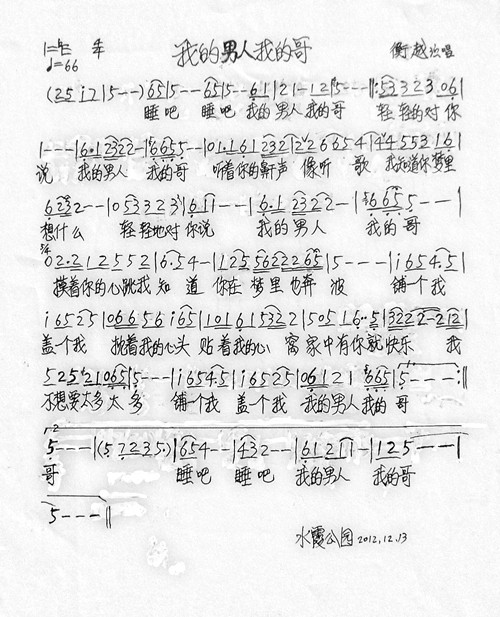 我的男人我的哥
♩=66
衡越 演唱
(2 5 i 7 | 5 - - -) | 6 5 | 5 - - 6 5 | 5 - - 6 1 | 2 1 - 1 2 | 5 - - - |: 5 3 3 2 3 . 0 6 |
睡吧 睡吧 我的男人 我的哥 轻轻的对你
1 - - - | 6 . 1 2 3 2 2 - | 6 6 5 5 - - | 0 1 . 1 6 1 2 3 2 | 2 2 6 6 5 4 | 4 4 5 5 2 1 6 |
说 我的男人 我的哥 听着你的鼾声 像听 歌 我知道你梦里
6 2 3 2 - - | 0 5 3 3 2 3 | 6 1 1 - - - | 6 . 1 2 3 2 2 - | 6 6 5 5 - - |
想什么 轻轻地对你说 我的男人 我的哥
0 2 . 2 1 2 5 5 2 | 6 . 5 4 - | 1 2 5 5 6 2 2 2 6 5 | 5 - - - | i 6 5 4 . 5 |
摸着你的心跳我 知 道 你在 梦里 也奔 波 铺一个我
i 6 5 2 5 | 0 6 6 5 6 i 6 5 | 1 0 1 6 1 5 3 2 2 | 5 0 5 1 6 . 5 | 3 2 2 2 - 2 1 2 |
盖一个我 枕着我的心头 贴着我的心 窝 家中有你就快乐 我
5 2 5 2 1 0 6 5 | 5 - - - | i 6 5 4 5 | i 6 5 2 5 | 0 6 1 2 1 6 6 5 | 5 - - - :||
不想要太多太多 铺一个我 盖一个我 我的男人我的 哥
5 - - - | (5 7 2 3 5 .) | 6 5 4 - - | 4 3 2 - - | 6 1 2 1 1 - | 1 2 5 - - - |
哥 睡吧 睡吧 我的男人 我的哥
5 - - - ||
水霞公园 2012.12.13